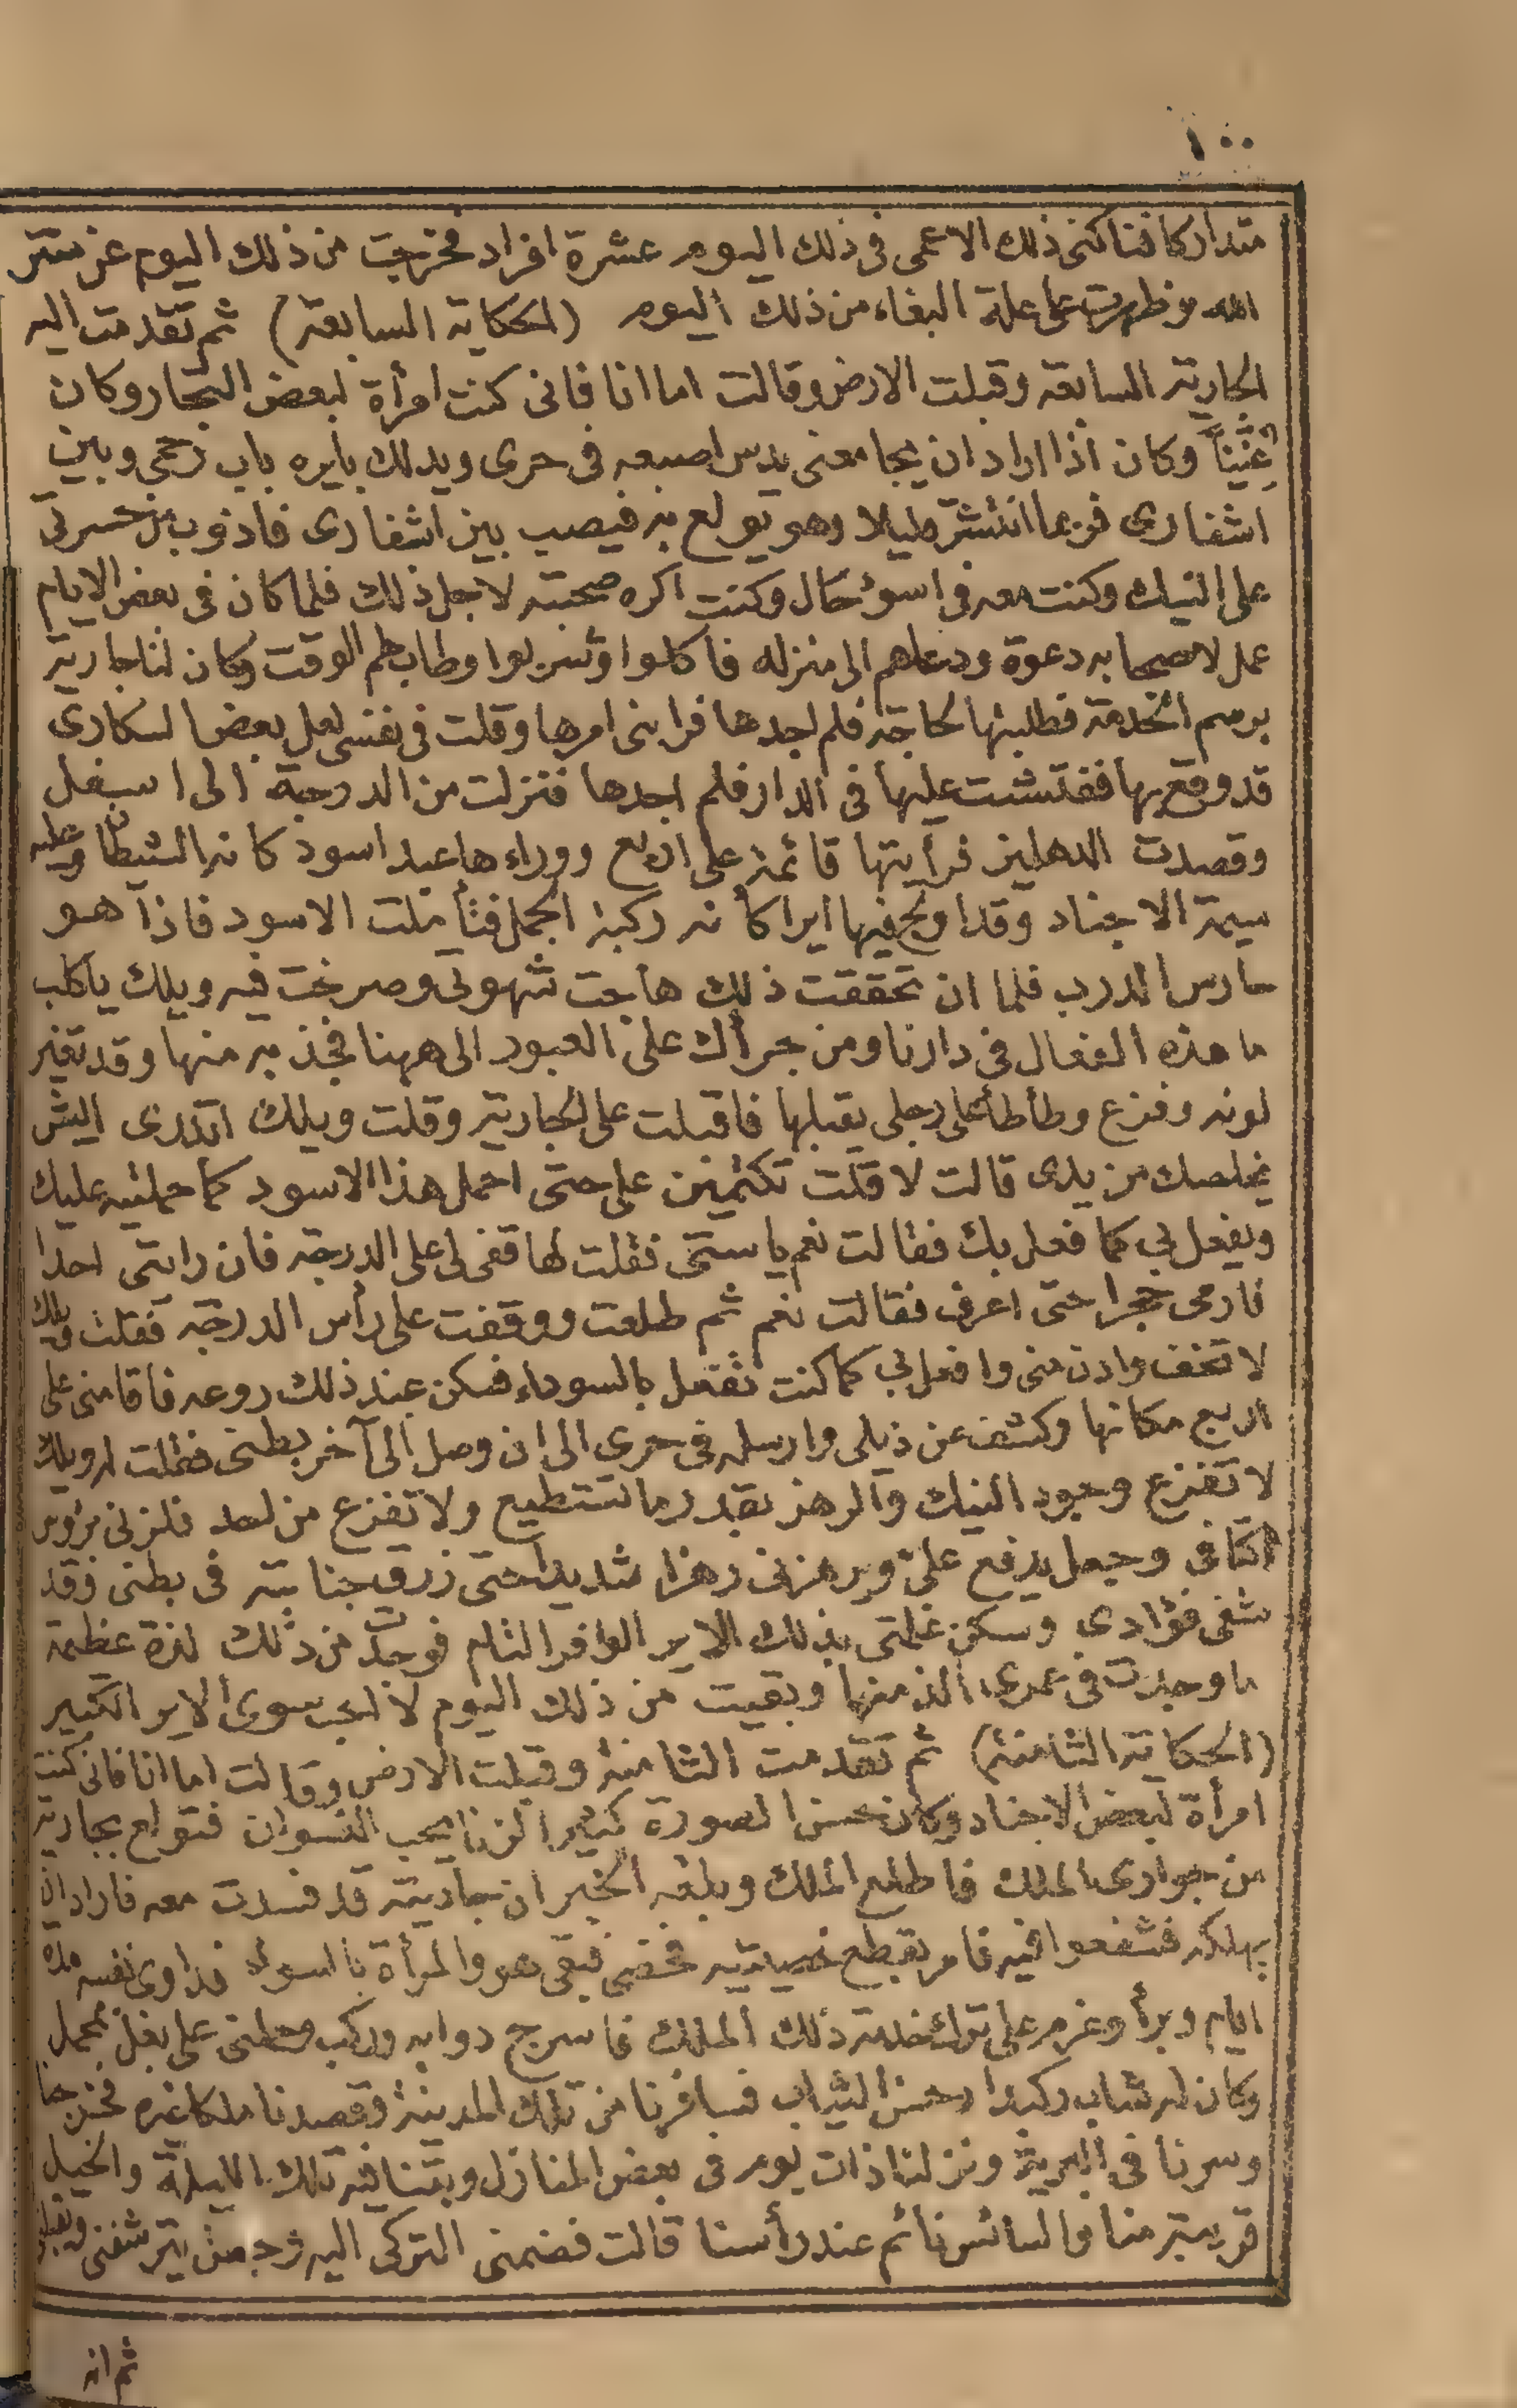 ١٠٠
متداركا فناكنى ذلك الاعمى فى ذلك اليوم عشرة افراد فخرجت من ذلك اليوم عن ستر
الله وظهرت على علة البغاء من ذلك اليوم (الحكاية السابعة) ثم تقدمت اليه
الجارية السابعة وقبلت الارض وقالت اما انا فانى كنت امرأة لبعض التجار وكان
عنّيناً وكان اذا اراد ان يجامعنى يدس اصبعه فى حرى ويدلك بايره باب رحمى وبين
اشفارى فربما انتشر قليلا وهو يولع به فيصب بين اشفارى فاذوب من حسرتى
على النيك وكنت معه فى اسوء حال وكنت اكره صحبته لاجل ذلك فلما كان فى بعض الايام
عمل لاصحابه دعوة ودعاهم الى منزله فاكلوا وشربوا وطاب لهم الوقت وكان لنا جارية
برسم الخدمة فطلبتها لحاجة فلم اجدها فرابنى امرها وقلت فى نفسى لعل بعض السكارى
قد وقع بها ففتشت عليها فى الدار فلم اجدها فنزلت من الدرجة الى اسفل
وقصدت الدهليز فرأيتها قائمة على اربع ووراءها عبد اسود كانه الشيطان وعليه
سيمة الاجناد وقد اولج فيها ايرا كأنه ركبة الجمل فتأملت الاسود فاذا هو
حارس الدرب فلما ان تحققت ذلك هاجت شهوتى وصرخت فيه ويلك ياكلب
ما هذه الفعال فى دارنا ومن جرأك على العبور الى ههنا فجذبه منها وقد تغير
لونه وفزع وطأطأ على رجلى يقبلها فاقبلت على الجارية وقلت ويلك اتدرى ايش
يخلصك من يدى قالت لا قلت تكتمين على حتى احمل هذا الاسود كما حملتيه عليك
ويفعل بى كما فعل بك فقالت نعم ياستى فقلت لها قفى لى على الدرجة فان رايتى احدا
فارمى حجرا حتى اعرف فقالت نعم ثم طلعت ووقفت على رأس الدرجة فقلت ويلك
لا تخف وادن منى وافعل بى كما كنت تفعل بالسوداء فسكن عند ذلك روعه فاقامنى على
اربع مكانها وكشف عن ذيلى وارسله فى حرى الى ان وصل الى آخر بطنى فقلت له ويلك
لا تفزع وجود النيك والرهز بقدر ما تستطيع ولا تفزع من احد فلزنى براوس
اكتافى وجعل يدفع علىّ ويرهزنى رهزا شديدا حتى زرق جنابته فى بطنى وقد
شفى فؤادى وسكن غلمتى بذلك الاير الوافر التام فوجدت من ذلك لذة عظيمة
ما وجدت فى عمرى الذ منها وبقيت من ذلك اليوم لا احب سوى الاير الكبير
(الحكاية الثامنة) ثم تقدمت الثامنة وقبلت الارض وقالت اما انا فانى كنت
امرأة لبعض الاجناد وكان حسن الصورة كثير الزنا يحب النسوان فتولع بجارية
من جوارى الملك فاطلع الملك وبلغه الخبر ان جاريته قد فسدت معه فاراد ان
يهلكه فشفعوا فيه فامر بقطع خصيتيه فخصى فبقى هو والمرأة بالسواء فداوى نفسه مدة
ايام وبرأ وعزم على ترك خدمة ذلك الملك فاسرج دوابه وركب وحطنى على بغل محمل
وكان له شاب ركبدار حسن الشباب فسافرنا من تلك المدينة وقصدنا ملكا غيره فخرجنا
وسرنا فى البرية ونزلنا ذات يوم فى بعض المنازل وبتنا فيه تلك الليلة والخيل
قريبة منا والسائس نائم عند رأسنا قالت فضمنى التركى اليه وجعل يترشفنى ويقبلنى
ثم انه